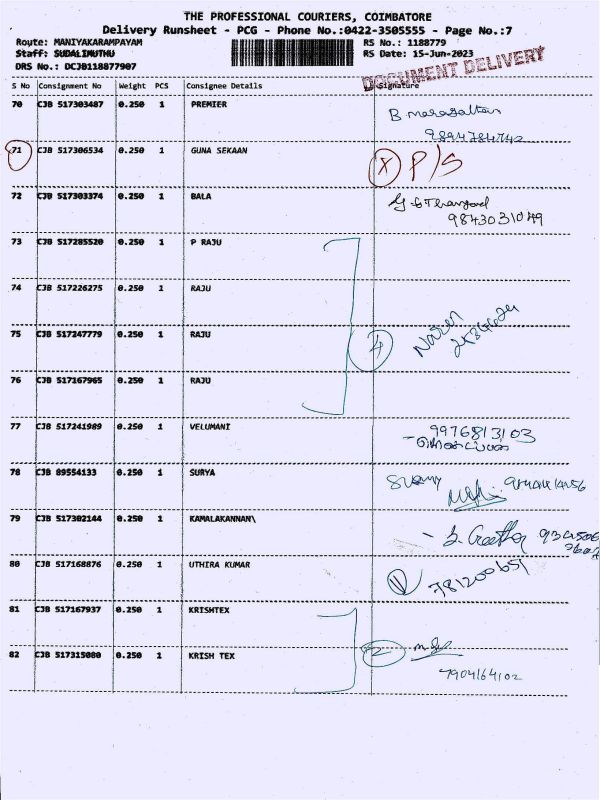 THE PROFESSIONAL COURIERS, COIMBATORE
Delivery Runsheet - PCG - Phone No.:0422-3505555 - Page No.:7
Route: MANIYAKARAMPAYAM RS No.: 1188779
Staff: SUDALIMUTHU RS Date: 15-Jun-2023
DRS No.: DCJB118877907
DOCUMENT DELIVERY
S No Consignment No Weight PCS Consignee Details Signature
70 CJB 517303487 0.250 1 PREMIER
9894784742
71 CJB 517306534 0.250 1 GUNA SEKAAN X P/S
72 CJB 517303374 0.250 1 BALA
9843031049
73 CJB 517285520 0.250 1 P RAJU
74 CJB 517226275 0.250 1 RAJU
75 CJB 517247779 0.250 1 RAJU 4
76 CJB 517167965 0.250 1 RAJU
77 CJB 517241989 0.250 1 VELUMANI 9976813103
78 CJB 89554133 0.250 1 SURYA
79 CJB 517302144 0.250 1 KAMALAKANNAN\
80 CJB 517168876 0.250 1 UTHIRA KUMAR
781200651
81 CJB 517167937 0.250 1 KRISHTEX
82 CJB 517315080 0.250 1 KRISH TEX 2
7904164102